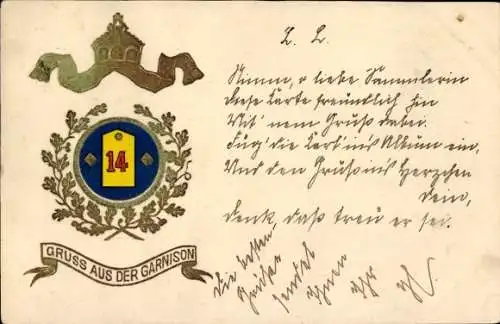 14
GRUSS AUS DER GARNISON
L. L.
Nimm, o liebe Sammlerin
diese Karte freundlich hin
Mit 'nem Gruß dabei.
Füg' die Kart' in's Album ein,
Und den Gruß in's Herzchen
dein,
denk, daß treu er sei.
Die besten
Grüße
sendet
Ihnen
Ihr